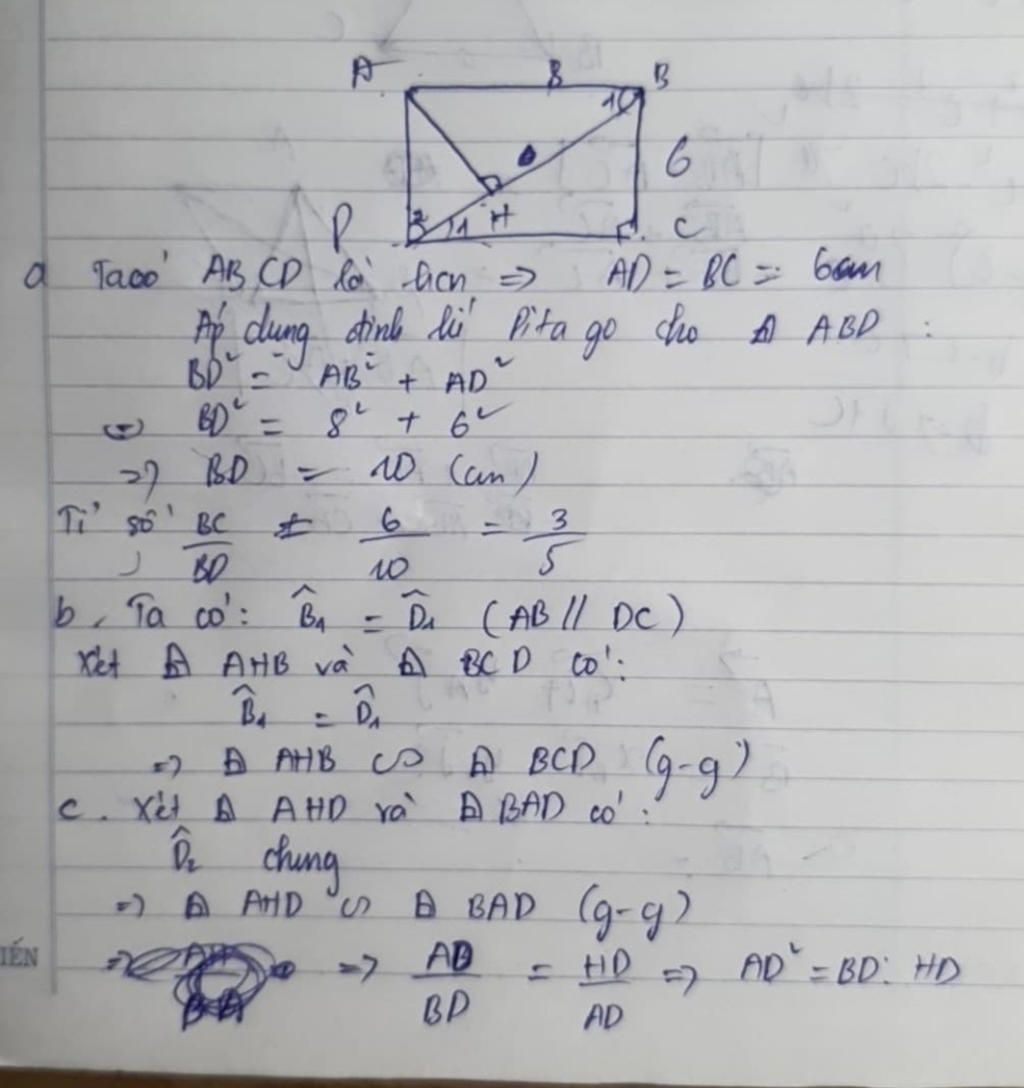 A 8 B
1
6
2 1 H
D C
a Ta có ABCD là hcn => AD = BC = 6cm
Áp dụng định lí Pitago cho Δ ABD :
BD² = AB² + AD²
<=> BD² = 8² + 6²
=> BD = 10 (cm)
Tỉ số BC/BD = 6/10 = 3/5
b, Ta có: B̂₁ = D̂₁ (AB // DC)
Xét Δ AHB và Δ BCD có:
B̂₁ = D̂₁
=> Δ AHB ∽ Δ BCD (g-g)
c. Xét Δ AHD và Δ BAD có:
D̂₂ chung
=> Δ AHD ∽ Δ BAD (g-g)
=> AD/BD = HD/AD => AD² = BD. HD
IẾN